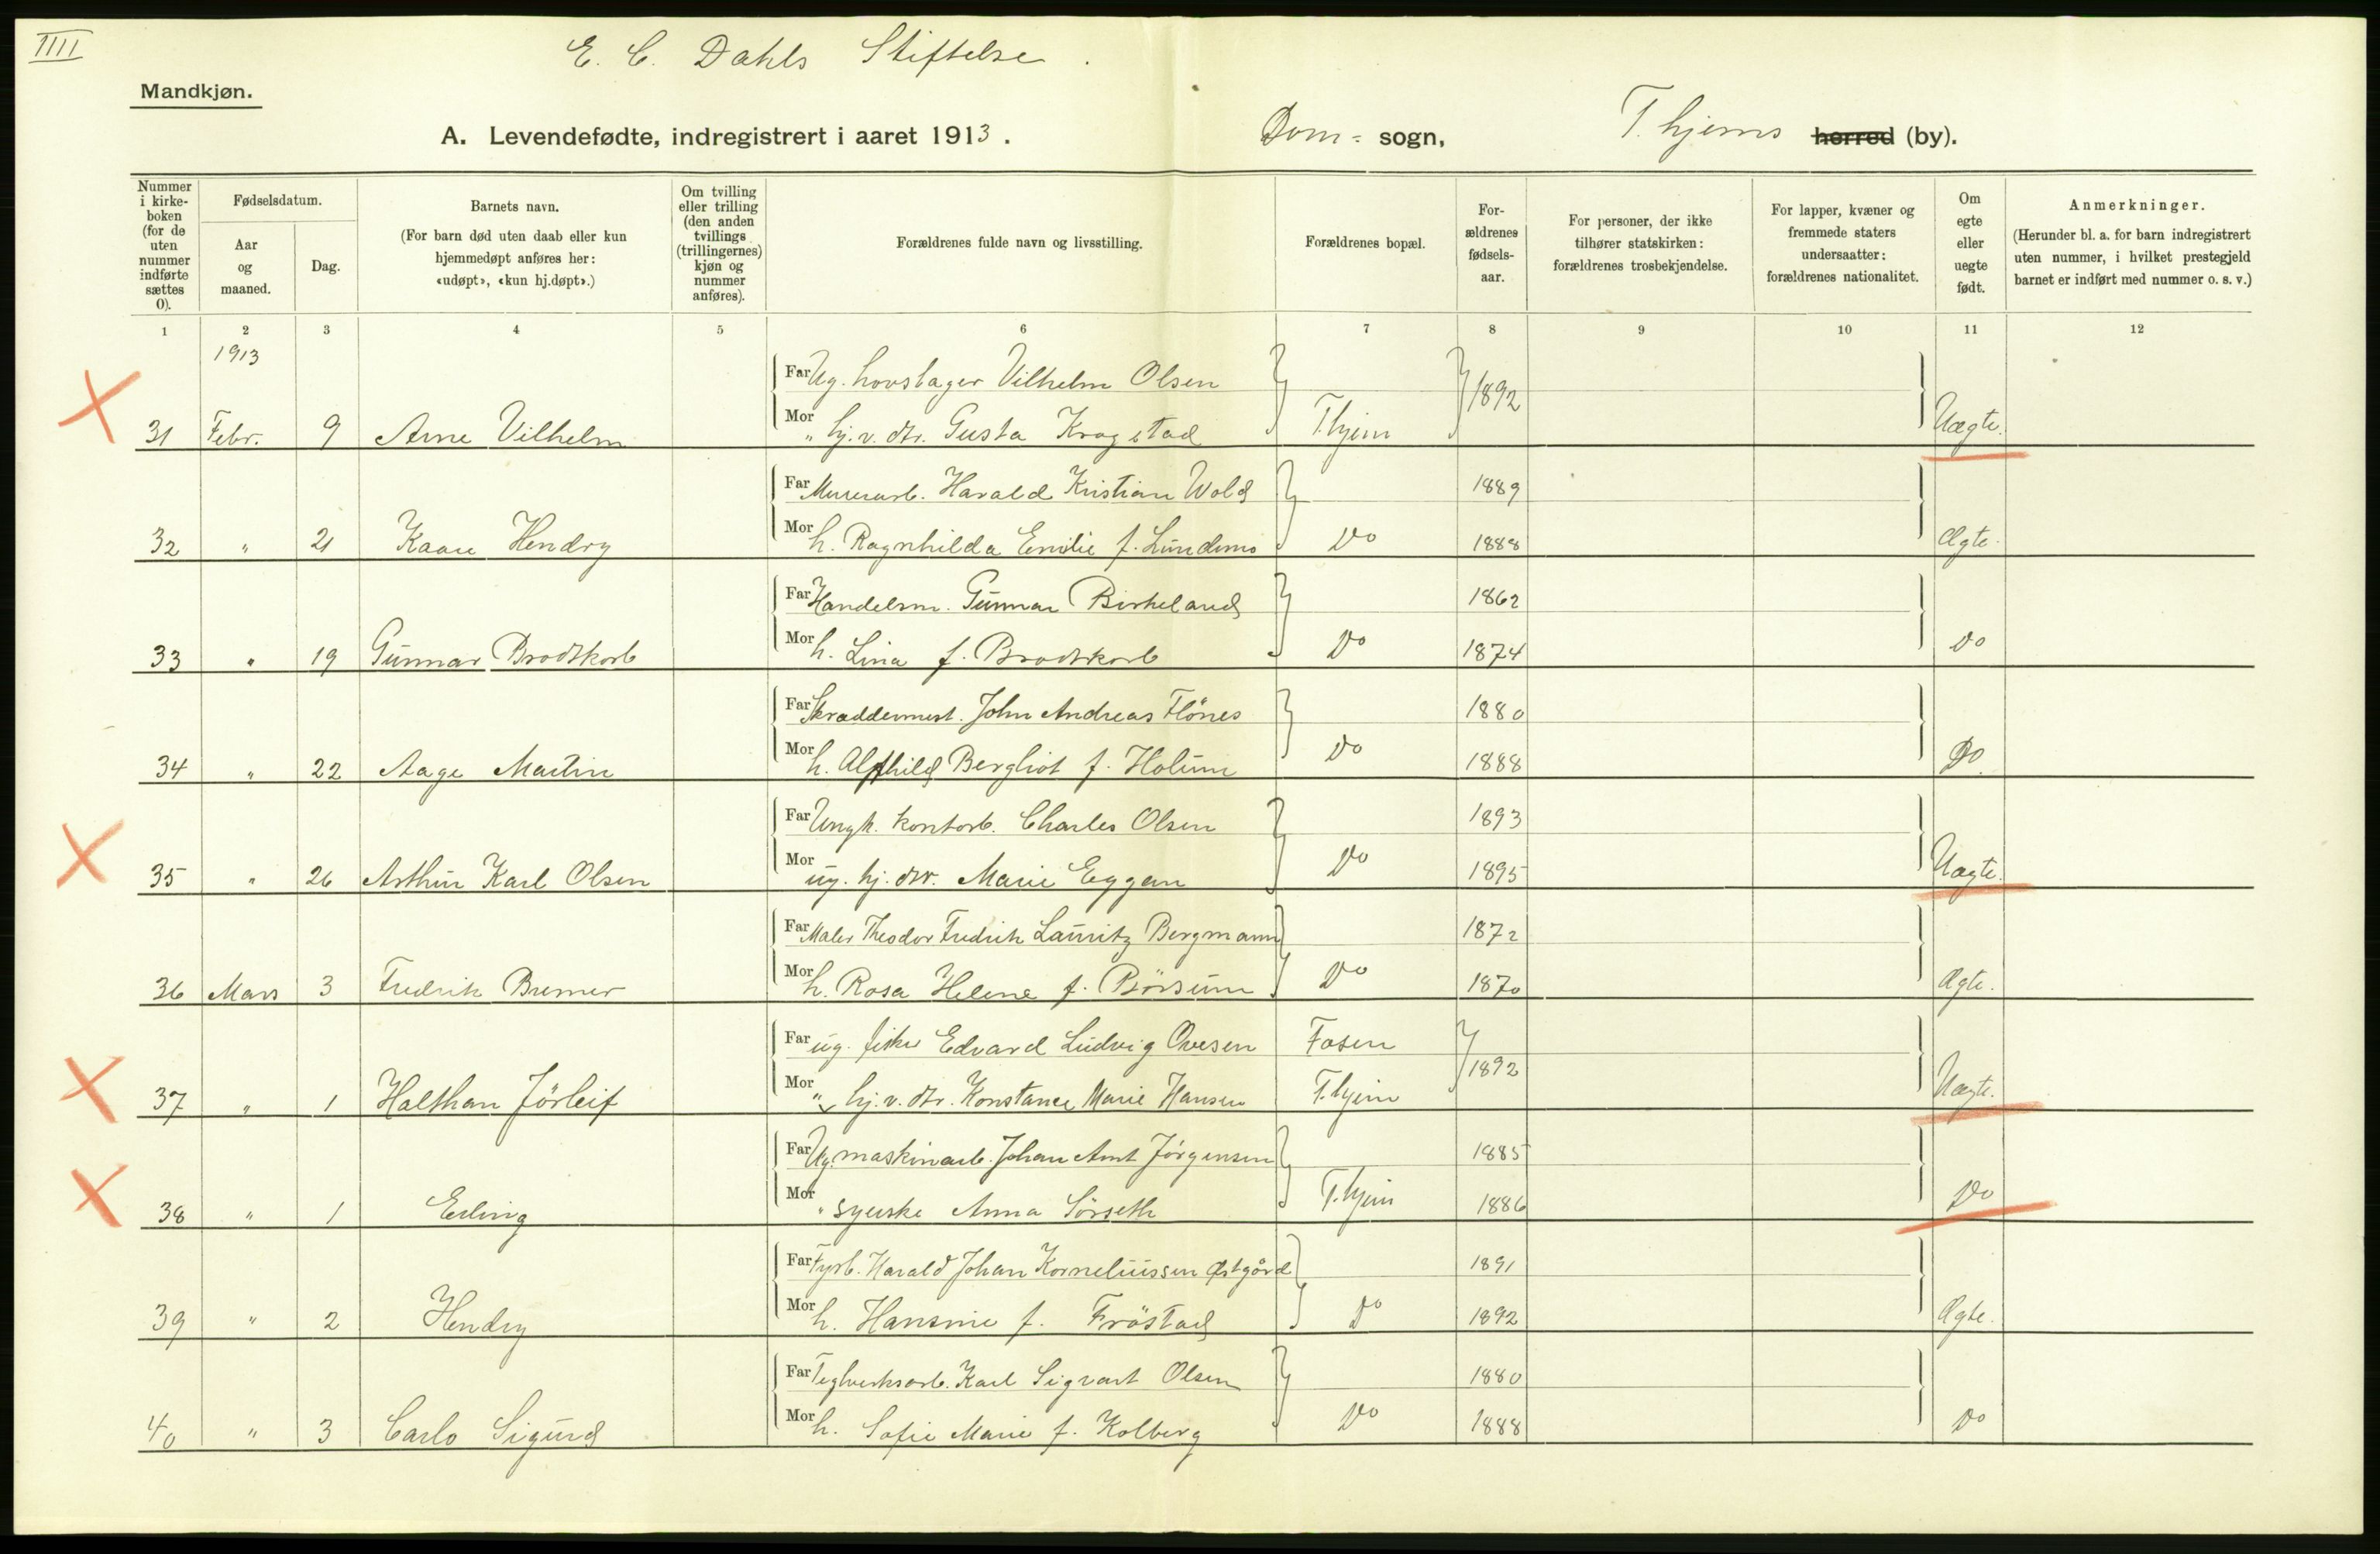 IIII
E. C. Dahls Stiftelse.
Mandkjøn.
A. Levendefødte, indregistrert i aaret 1913.
Dom= sogn,
T.hjems herred (by).
Nummer i kirke-boken (for de uten nummer indførte sættes 0).
Fødselsdatum.
Aar og maaned.
Dag.
Barnets navn.
(For barn død uten daab eller kun hjemmedøpt anføres her: «udøpt», «kun hj.døpt».)
Om tvilling eller trilling (den anden tvillings (trillingernes) kjøn og nummer anføres).
Forældrenes fulde navn og livsstilling.
Forældrenes bopæl.
For-ældrenes fødsels-aar.
For personer, der ikke tilhører statskirken: forældrenes trosbekjendelse.
For lapper, kvæner og fremmede staters undersaatter: forældrenes nationalitet.
Om egte eller uegte født.
Anmerkninger.
(Herunder bl. a. for barn indregistrert uten nummer, i hvilket prestegjeld barnet er indført med nummer o. s. v.)
1 2 3 4 5 6 7 8 9 10 11 12
1913
Far Ug. hovslager Vilhelm Olsen 1892
31 Febr. 9 Arne Vilhelm Mor " hj. v. dtr. Gusta Krogstad T.hjem Uægte.
Far Murerarb. Harald Kristian Wold 1889
32 " 21 Kaare Hendry Mor h. Ragnhilda Emilie f. Lundemo Do 1888 Ægte.
Far Handelsm. Gunnar Birkeland 1862
33 " 19 Gunnar Brodtkorb Mor h. Lina f. Brodtkorb Do 1874 Do
Far Skræddermest. John Andreas Flönes 1880
34 " 22 Aage Martin Mor h. Alfhild Bergliot f. Holum Do 1888 Do.
Far Ungk. kontorb. Charles Olsen 1893
35 " 26 Arthur Karl Olsen Mor ug. hj. dtr. Marie Eggan Do 1895 Uægte.
Far Maler Theodor Fredrik Lauritz Bergmann 1872
36 Mars 3 Fredrik Bremer Mor h. Rosa Helene f. Börsum Do 1870 Ægte.
Far ug. fisker Edvard Ludvig Ovesen Fosen 1892
37 " 1 Halthan Jörleif Mor " hj. v. dtr. Konstance Marie Hansen T.hjem Uægte.
Far Ug. maskinarb. Johan Arnt Jörgensen 1885
38 " 1 Erling Mor " syerske Anna Sörseth T.hjem 1886 Do
Far Fyrb. Harald Johan Korneliussen Østgård 1891
39 " 2 Hendry Mor h. Hansine f. Fröstad Do 1892 Ægte.
Far Teglverksarb. Karl Sigvart Olsen 1880
40 " 3 Carlo Sigurd Mor h. Sofie Marie f. Kolberg Do 1888 Do